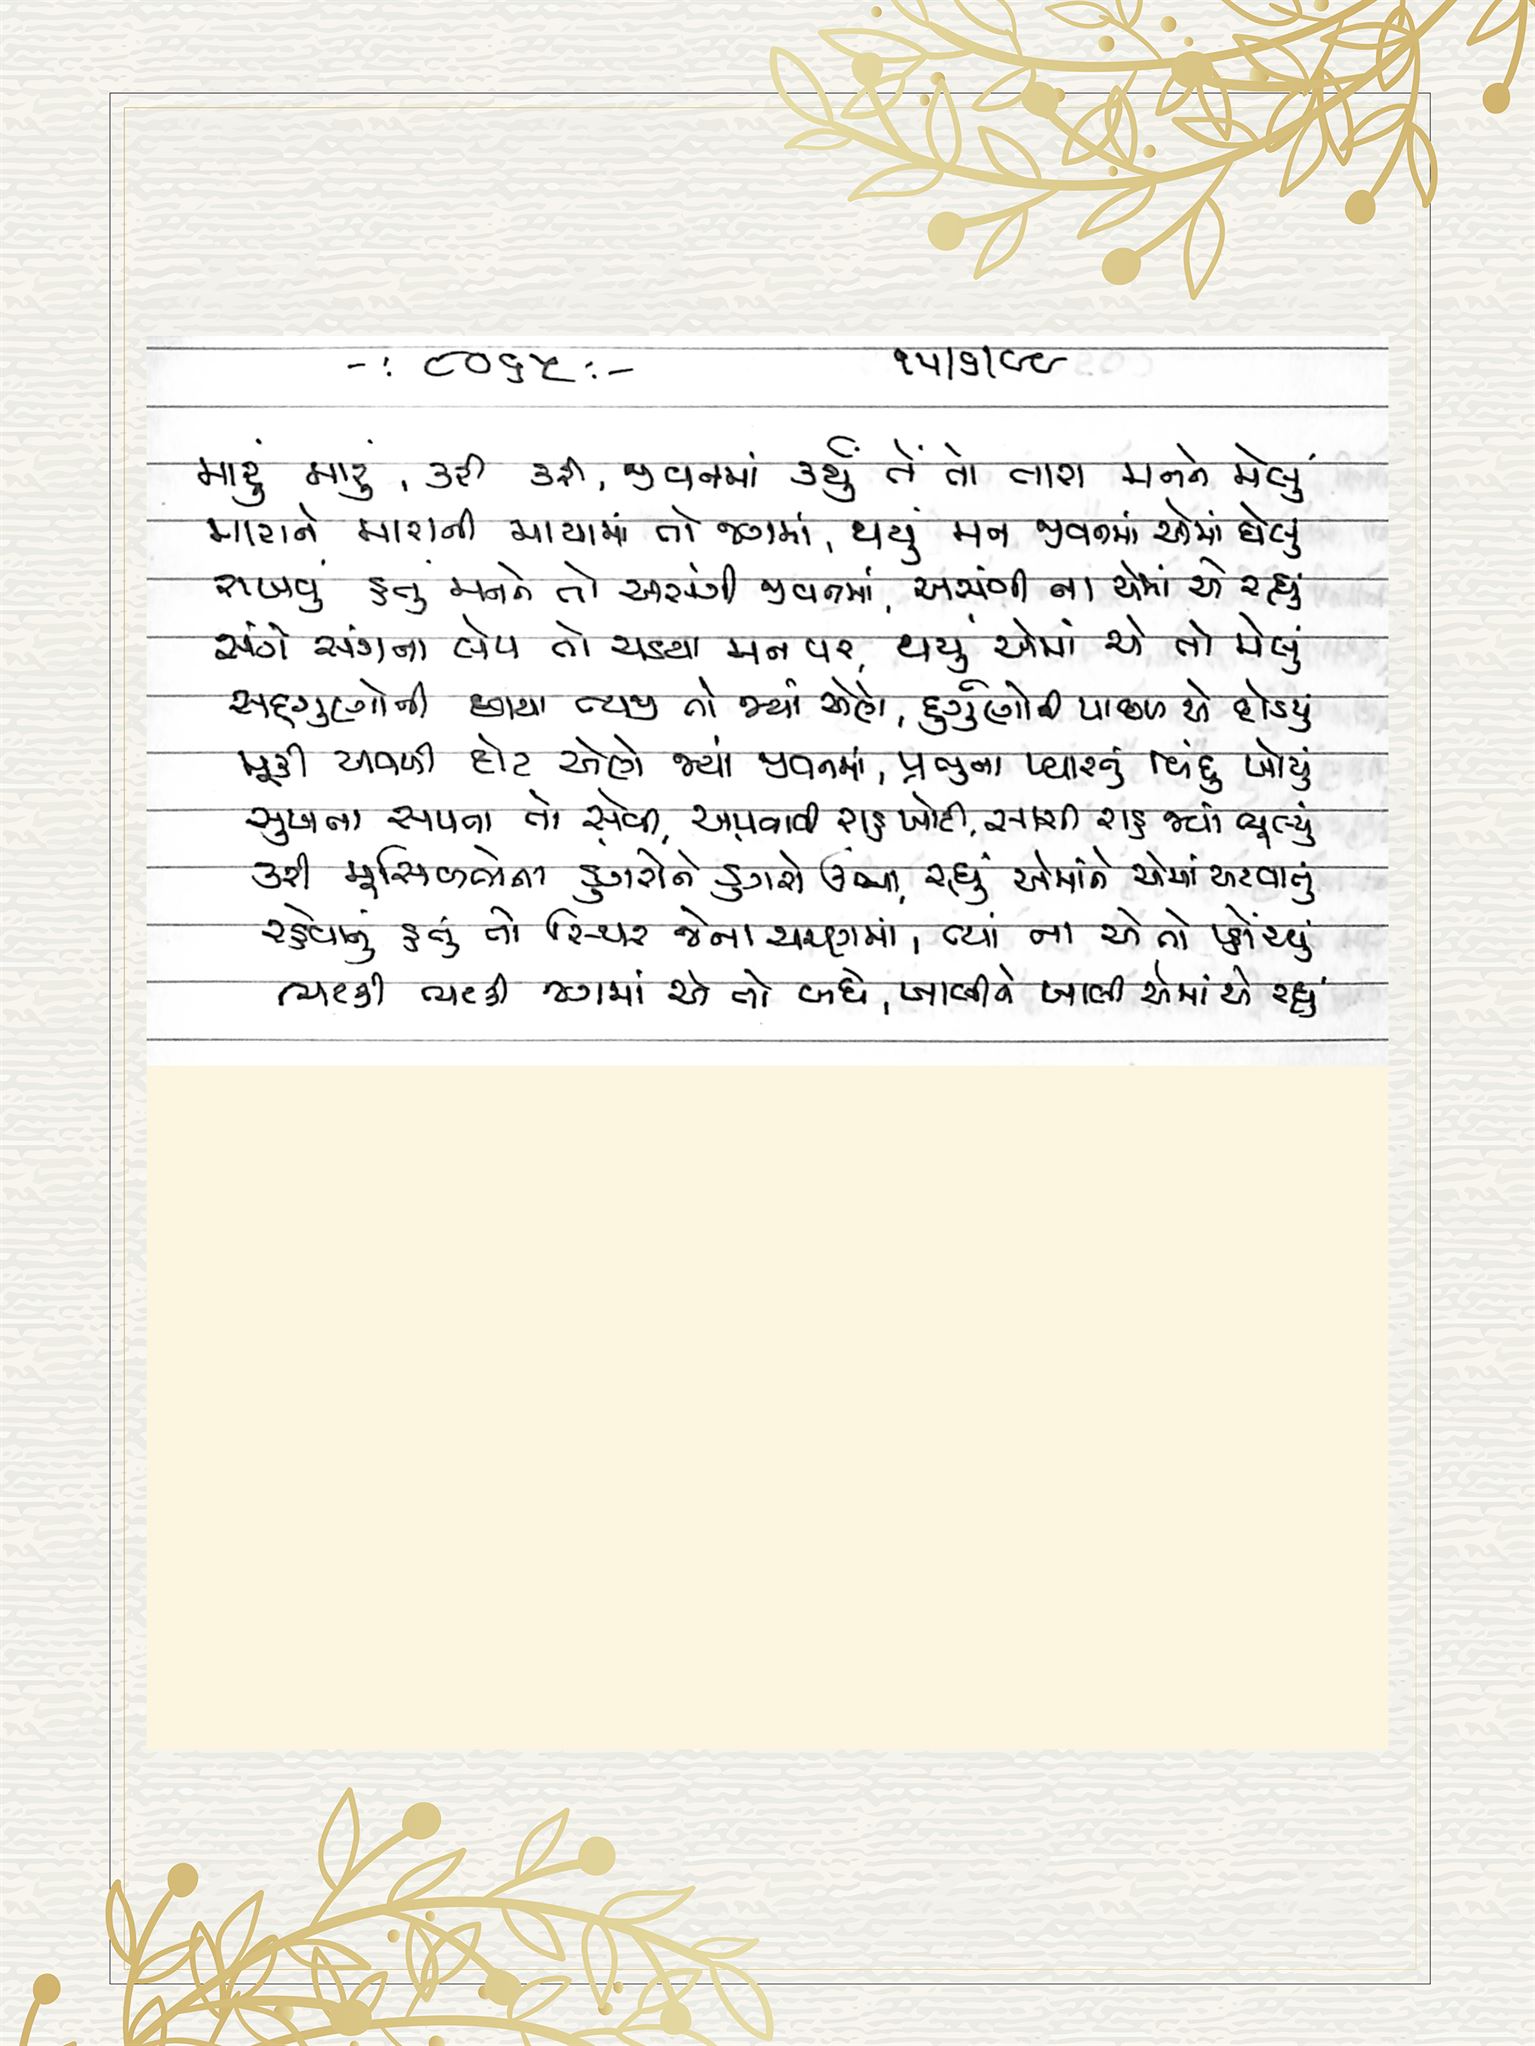 -: ૮૦૬૫ :- ૧૫/૬/૯૯
મારું મારું, કરી કરી, જીવનમાં કર્યું તેં તો તારા મનને મેલું
મારાને મારાની માયામાં તો જગમાં, થયું મન જીવનમાં એમાં ઘેલું
રાખવું હતું મનને તો અસંગી જીવનમાં, અસંગી ના એમાં એ રહ્યું
સંગે સંગના લેપ તો ચડયા મન પર, થયું એમાં એ તો મેલું
સદ્ગુણોની છાયા ત્યજી તો જ્યાં એણે, દુર્ગુણોની પાછળ એ દોડયું
મૂકી આવળી દોટ એણે જ્યાં જીવનમાં, પ્રભુના પ્યારનું બિંદુ ખોયું
સુખના સપના તો સેવી, અપનાવી રાહ ખોટી, સાચી રાહ જ્યાં ભૂલ્યું
કરી મૂસિબતોના ડુંગરોને ડુંગરો ઊભા, રહ્યું એમાંને એમાં અટવાતું
રહેવાનું હતું તો સ્થિર જેના ચરણમાં, ત્યાં ના એ તો પ્હોંચ્યું
ભટકી ભટકી જગમાં એ તો બધે, ખાલીને ખાલી એમાં એ રહ્યું